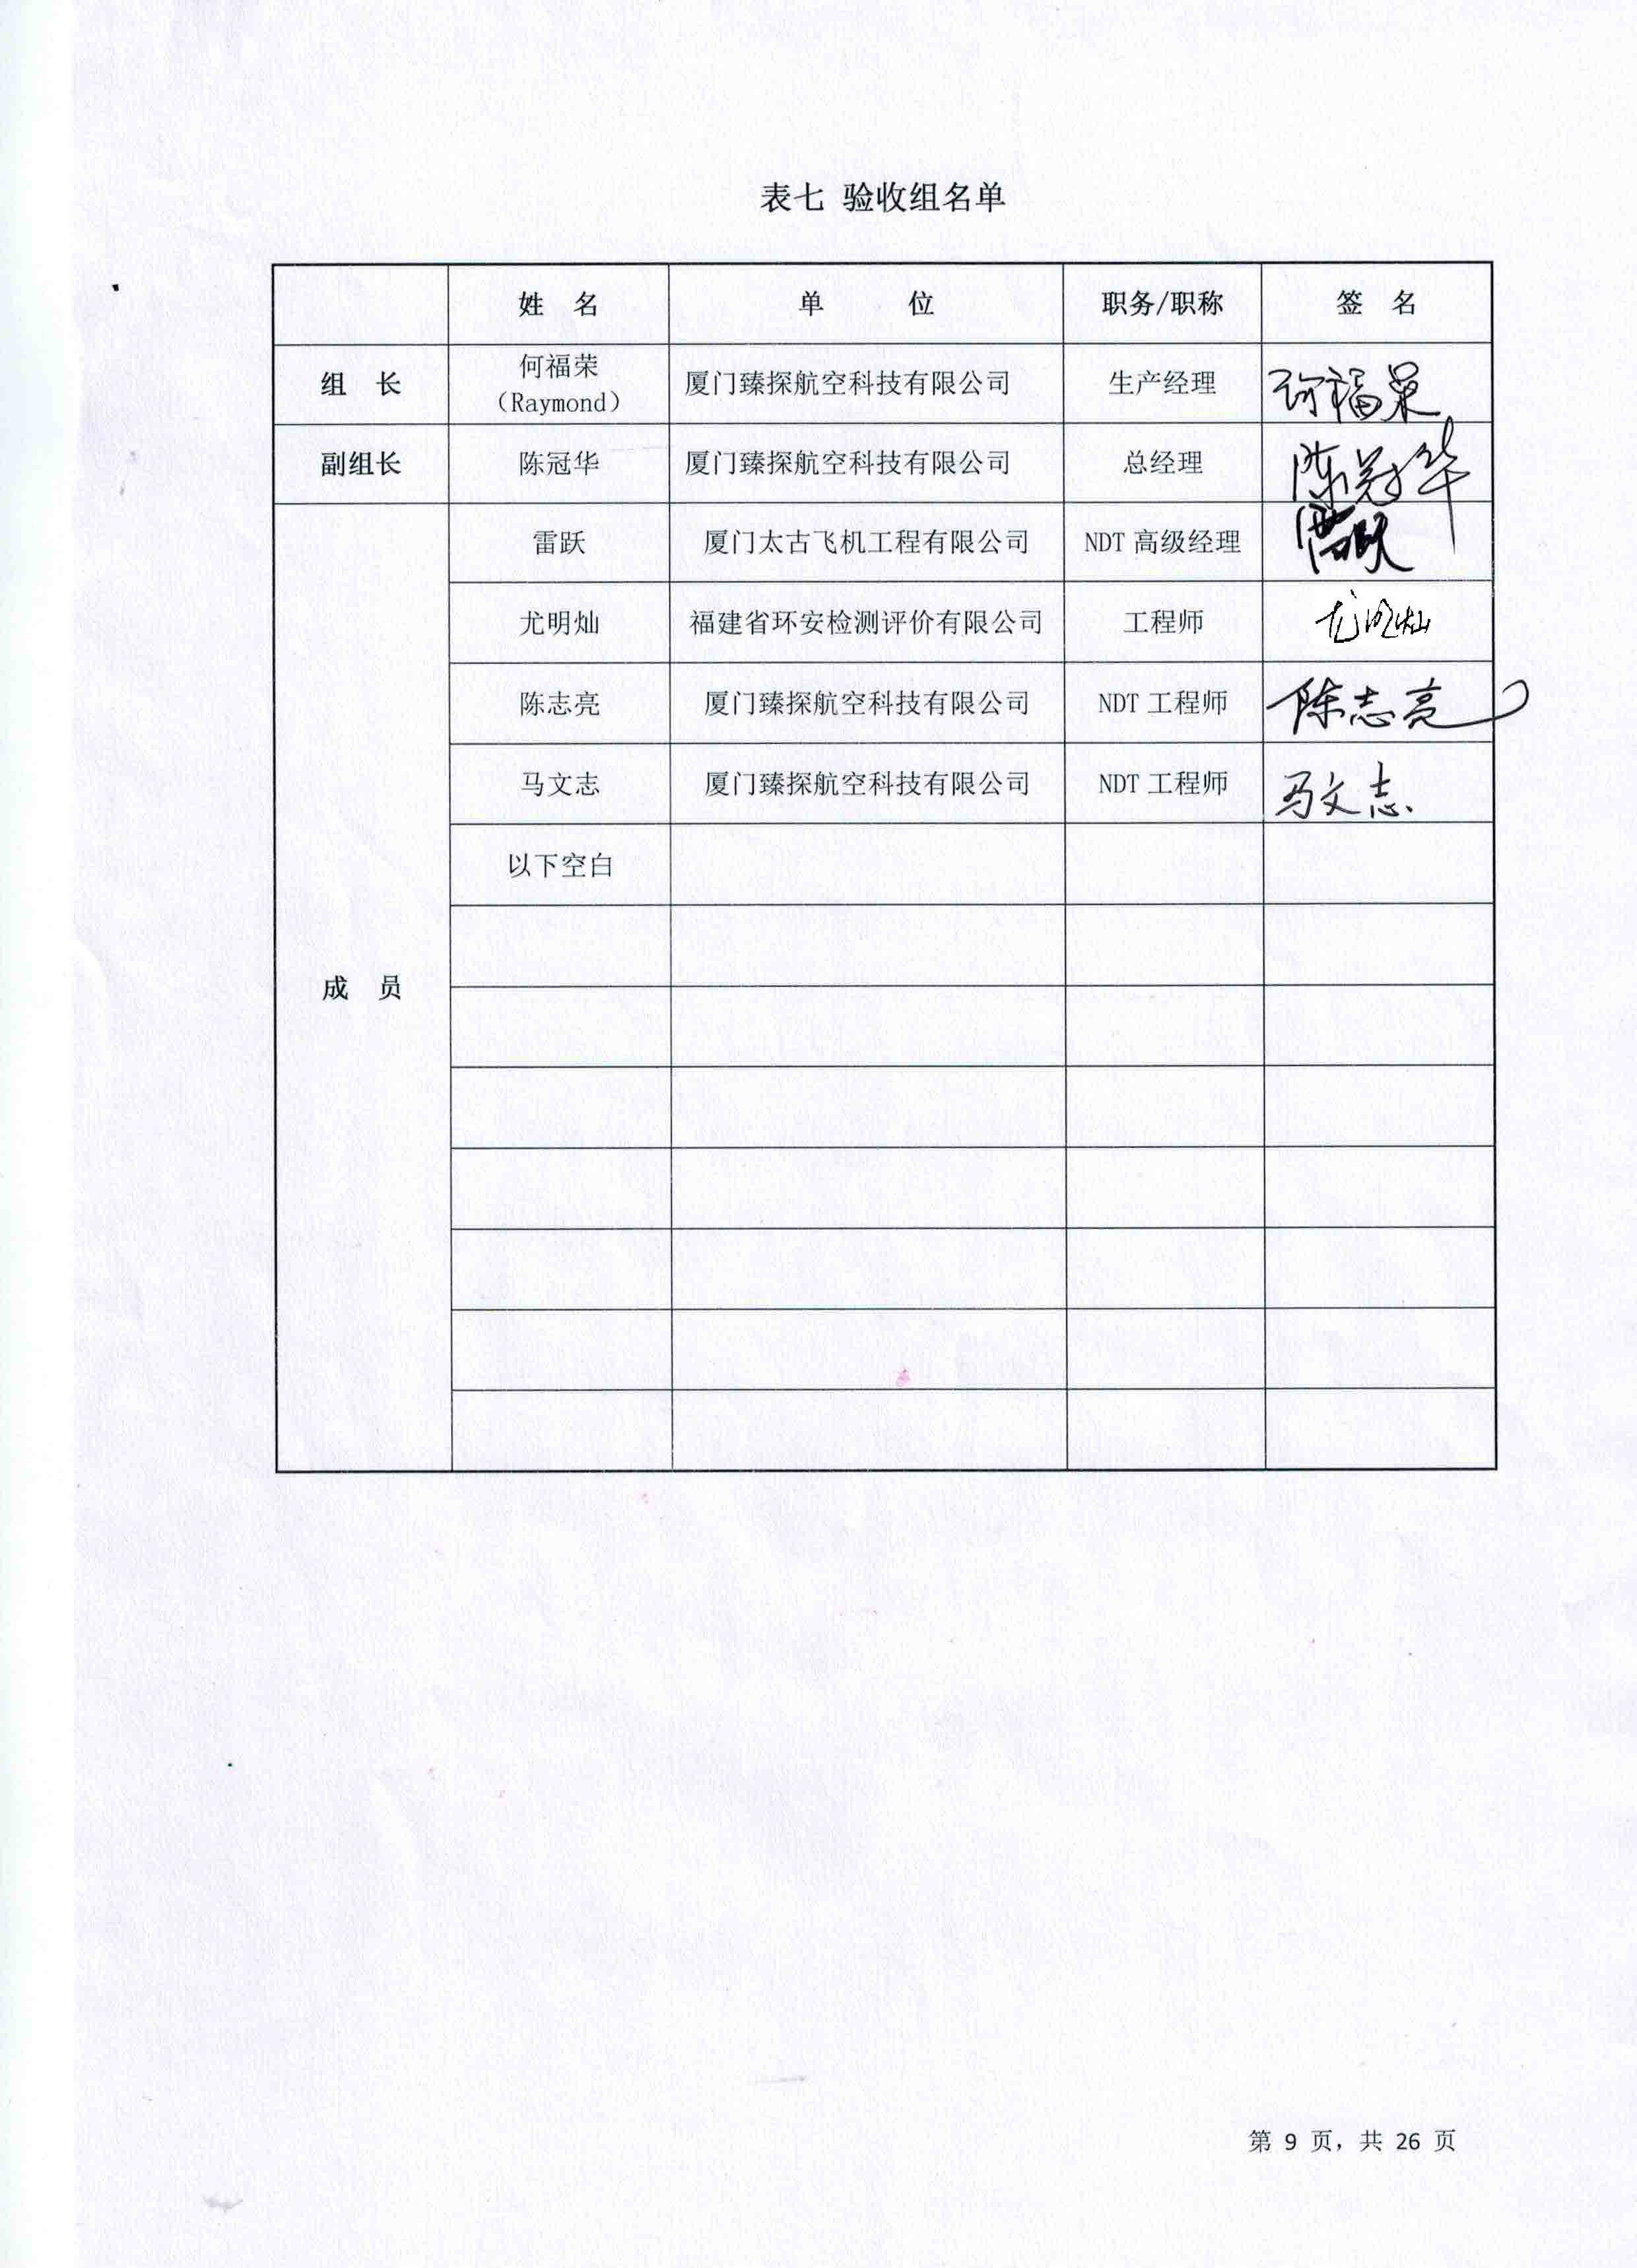 表七 验收组名单
姓 名 单 位 职务/职称 签 名
组 长 何福荣 (Raymond) 厦门臻探航空科技有限公司 生产经理 何福荣
副组长 陈冠华 厦门臻探航空科技有限公司 总经理 陈冠华
雷跃 厦门太古飞机工程有限公司 NDT 高级经理 雷跃
尤明灿 福建省环安检测评价有限公司 工程师 尤明灿
陈志亮 厦门臻探航空科技有限公司 NDT 工程师 陈志亮
马文志 厦门臻探航空科技有限公司 NDT 工程师 马文志
以下空白
成 员
第 9 页，共 26 页